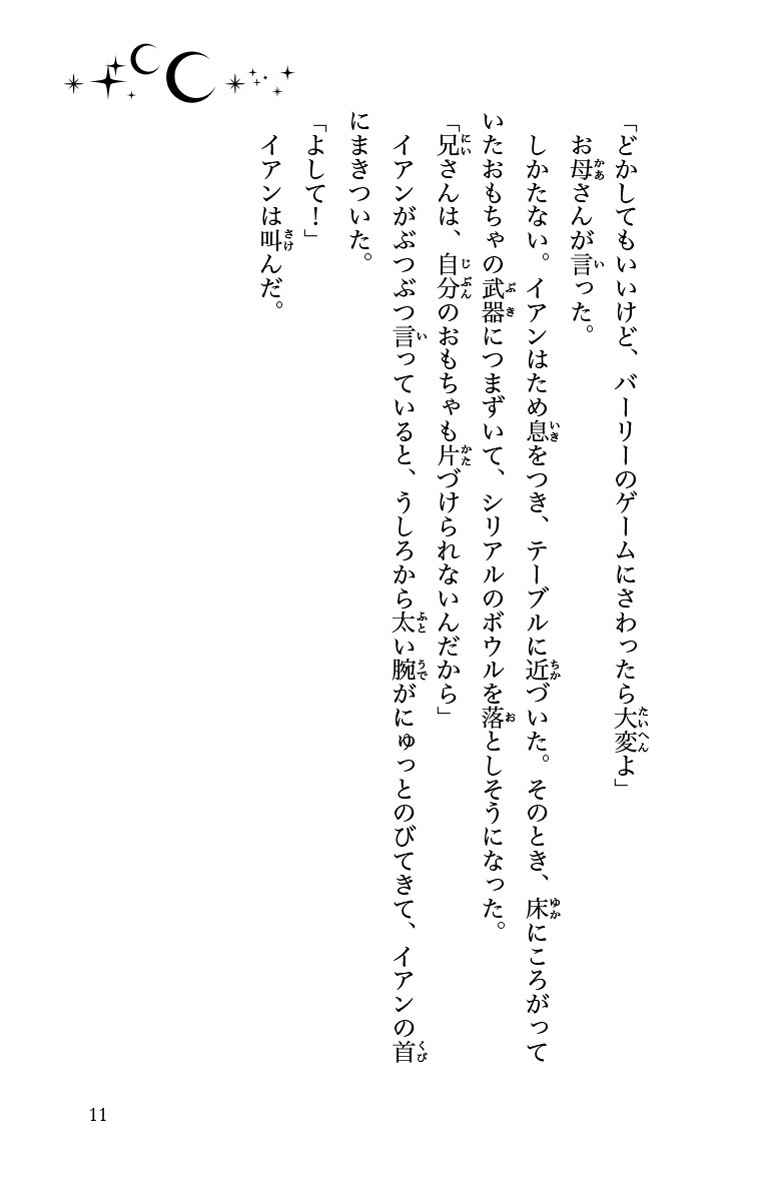 「どかしてもいいけど、バーリーのゲームにさわったら大変よ」
お母さんが言った。
しかたない。イアンはため息をつき、テーブルに近づいた。そのとき、床にころがって
いたおもちゃの武器につまずいて、シリアルのボウルを落としそうになった。
「兄さんは、自分のおもちゃも片づけられないんだから」
イアンがぶつぶつ言っていると、うしろから太い腕がにゅっとのびてきて、イアンの首
にまきついた。
「よして！」
イアンは叫んだ。
11